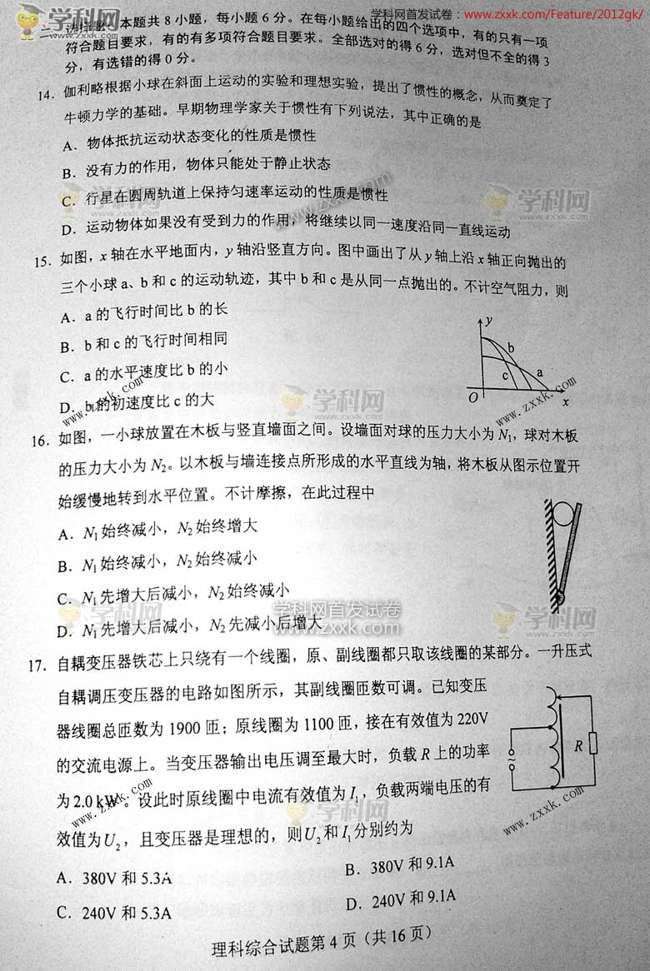 学科网首发试卷:www.zxxk.com/Feature/2012gk/
二、选择题:本题共 8 小题,每小题 6 分。在每小题给出的四个选项中,有的只有一项
符合题目要求,有的有多项符合题目要求。全部选对的得 6 分,选对但不全的得 3
分,有选错的得 0 分。
14. 伽利略根据小球在斜面上运动的实验和理想实验,提出了惯性的概念,从而奠定了
牛顿力学的基础。早期物理学家关于惯性有下列说法,其中正确的是
A. 物体抵抗运动状态变化的性质是惯性
B. 没有力的作用,物体只能处于静止状态
C. 行星在圆周轨道上保持匀速率运动的性质是惯性
D. 运动物体如果没有受到力的作用,将继续以同一速度沿同一直线运动
15. 如图,x 轴在水平地面内,y 轴沿竖直方向。图中画出了从 y 轴上沿 x 轴正向抛出的
三个小球 a、b 和 c 的运动轨迹,其中 b 和 c 是从同一点抛出的。不计空气阻力,则
A. a 的飞行时间比 b 的长
B. b 和 c 的飞行时间相同
C. a 的水平速度比 b 的小
D. b 的初速度比 c 的大
y
b
c
a
O
x
16. 如图,一小球放置在木板与竖直墙面之间。设墙面对球的压力大小为 N₁,球对木板
的压力大小为 N₂。以木板与墙连接点所形成的水平直线为轴,将木板从图示位置开
始缓慢地转到水平位置。不计摩擦,在此过程中
A. N₁ 始终减小,N₂ 始终增大
B. N₁ 始终减小,N₂ 始终减小
C. N₁ 先增大后减小,N₂ 始终减小
D. N₁ 先增大后减小,N₂ 先减小后增大
17. 自耦变压器铁芯上只绕有一个线圈,原、副线圈都只取该线圈的某部分。一升压式
自耦调压变压器的电路如图所示,其副线圈匝数可调。已知变压
器线圈总匝数为 1900 匝;原线圈为 1100 匝,接在有效值为 220V
的交流电源上。当变压器输出电压调至最大时,负载 R 上的功率
为 2.0 kW。设此时原线圈中电流有效值为 I₁,负载两端电压的有
效值为 U₂,且变压器是理想的,则 U₂ 和 I₁ 分别约为
A. 380V 和 5.3A
B. 380V 和 9.1A
C. 240V 和 5.3A
D. 240V 和 9.1A
~
R
理科综合试题第 4 页(共 16 页)
学科网
www.zxxk.com
学科网首发试卷
www.zxxk.com